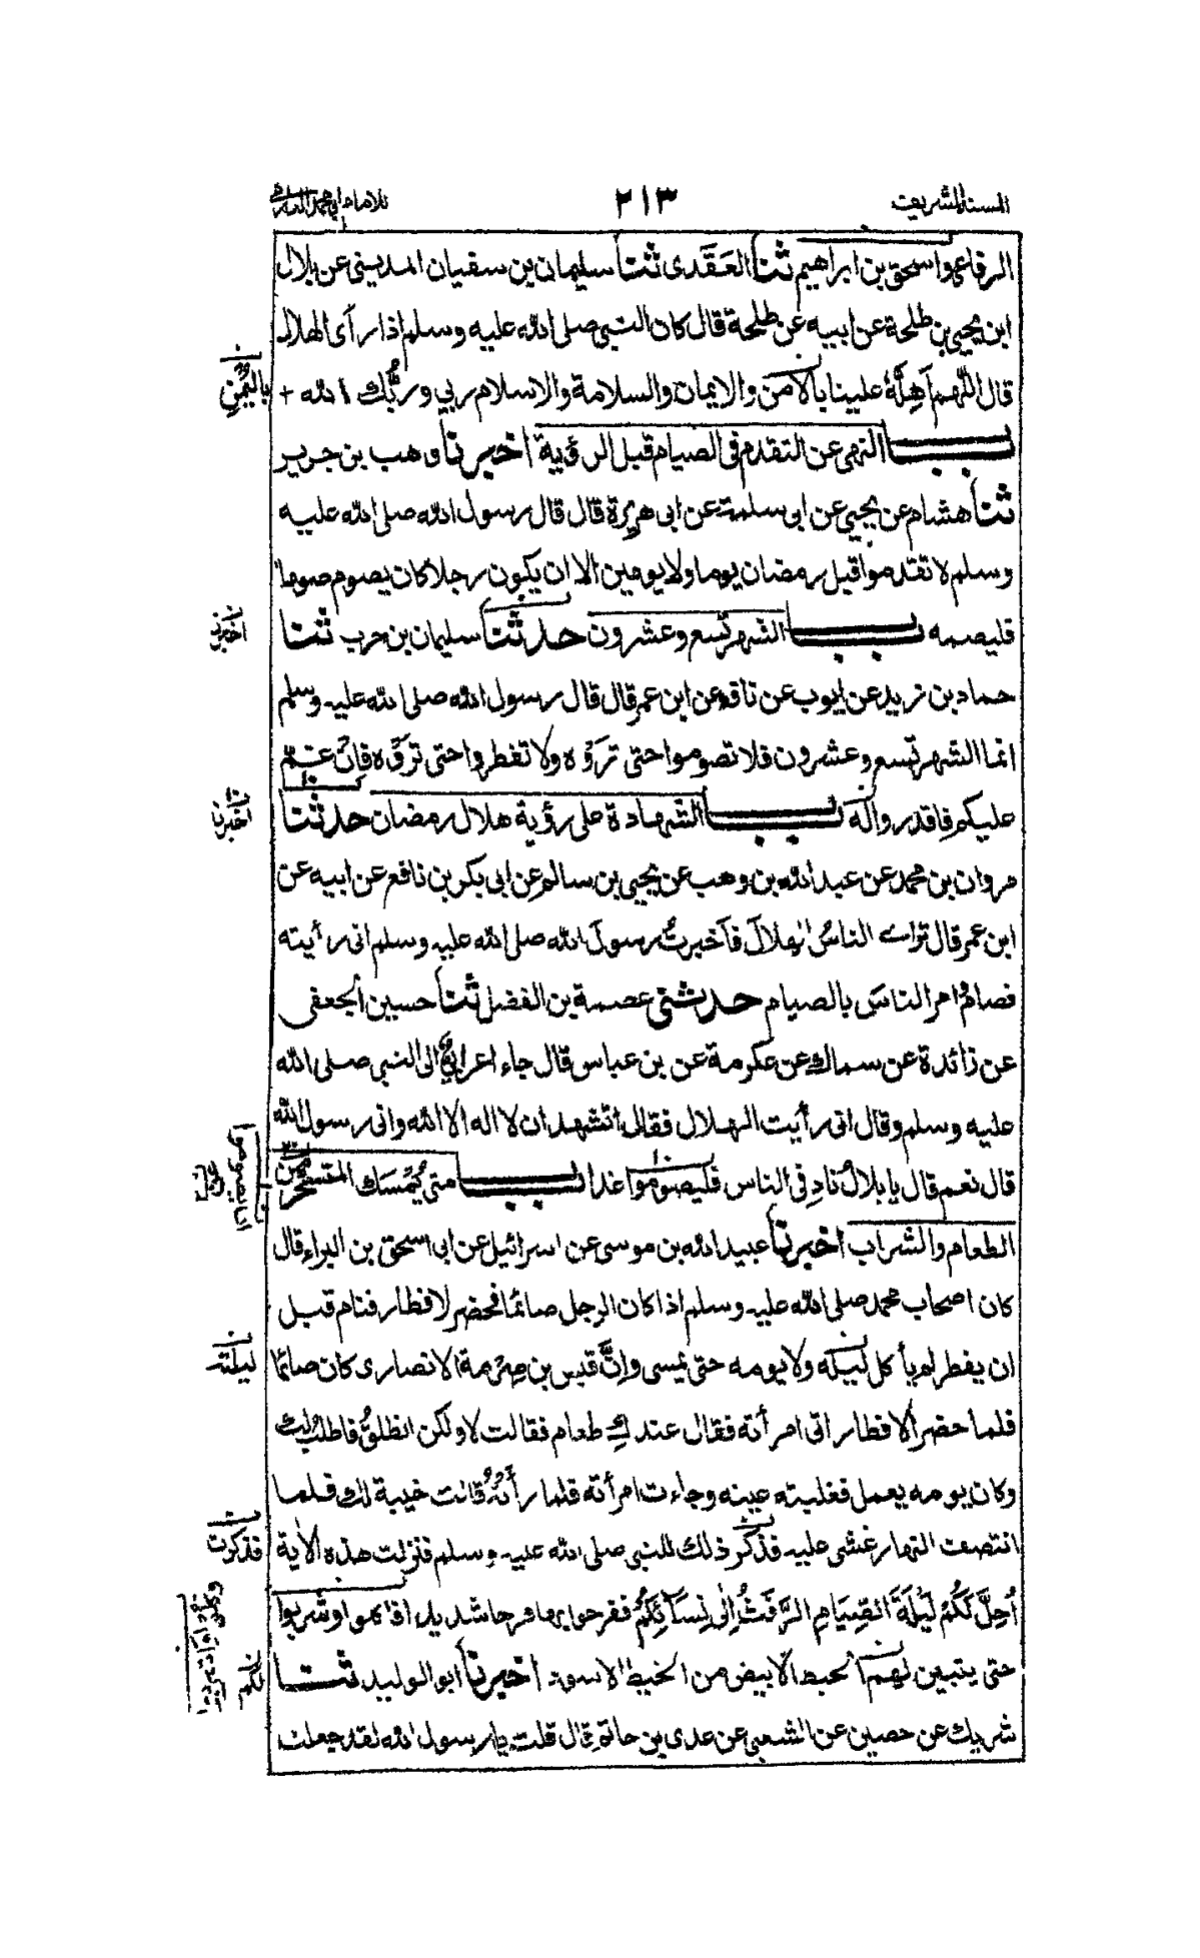 المسند الشريف ٢١٣ للامام ابي محمد الدارمي
الرفاعي واسحق بن ابراهيم ثنا العَقَدى ثنا سليمان بن سفيان المديني عن بلال
ابن يحيى بن طلحة عن ابيه عن طلحة قال كان النبي صلى الله عليه وسلم اذا رآى الهلال
قال اللّٰهم اَهِلَّهٗ علينا بالامن والايمان والسلامة والاسلام ربي وربُّك الله +
بالیُمْنِ
باب النهى عن التقدم فى الصيام قبل الرؤية اخبرنا وهب بن جرير
ثنا هشام عن يحيى عن ابى سلمة عن ابى هريرة قال قال رسول الله صلى الله عليه
وسلم لا تقدموا قبل رمضان يوما ولا يومين الا ان يكون رجلا كان يصوم صوما
فليصمه باب الشهر تسع وعشرون حدثنا سليمان بن حرب ثنا
اخبرنا
حماد بن زيد عن ايوب عن نافع عن ابن عمر قال قال رسول الله صلى الله عليه وسلم
انما الشهر تسع وعشرون فلا تصوموا حتى تروه ولا تفطروا حتى تروه فان غم
عليكم فاقدروا له باب الشهادة على رؤية هلال رمضان حدثنا
اخبرنا
مروان بن محمد عن عبد الله بن وهب عن يحيى بن سالم عن ابى بكر بن نافع عن ابيه عن
ابن عمر قال تراءى الناسُ الهلالَ فاَخبرتُ رسولَ الله صلى الله عليه وسلم انى رأيته
فصام وامر الناسَ بالصيام حدثنى عصمة بن الفضل ثنا حسين الجعفى
عن زائدة عن سماك عن عكرمة عن بن عباس قال جاء اعرابيٌّ الى النبي صلى الله
عليه وسلم وقال انى رأيت الهلال فقال أتشهد ان لا اله الا الله وانى رسول الله
قال نعم قال يا بلالُ نادِ فى الناس فليصوموا غدا باب متى يُمْسِك المتسحر من
ان يصوموا
الطعام والشراب اخبرنا عبيد الله بن موسى عن اسرائيل عن ابى اسحق بن البراء قال
كان اصحاب محمد صلى الله عليه وسلم اذا كان الرجل صائما فحضر لافطار فنام قبل
ان يفطر لم يأكل ليله ولا يومه حتى يمسى وانَّ قيس بن صِرْمة الانصارى كان صائما
ليلته
فلما حضر الافطار اتى امرأته فقال عندكِ طعام فقالت لا ولكن انطلقُ فاطلبُ لك
وكان يومه يعمل فغلبته عينه وجاءت امرأته فلما رأتْهُ قالت خيبة لك فلما
انتصف النهار غشى عليه فذكر ذلك للنبى صلى الله عليه وسلم فنزلت هذه الاٰية
فذكرت
اُحِلَّ لَكُمْ لَيْلَةَ الصِّيَامِ الرَّفَثُ اِلٰى نِسَآئِكُمْ ففرحوا بها فرحا شديدا فاكلوا وشربوا
حتى يتبين لهم الخيط الابيض من الخيط الاسود اخبرنا ابو الوليد ثنا
لكم
شريك عن حصين عن الشعبى عن عدى بن حاتم قال قلت يا رسول الله لقد جعلت